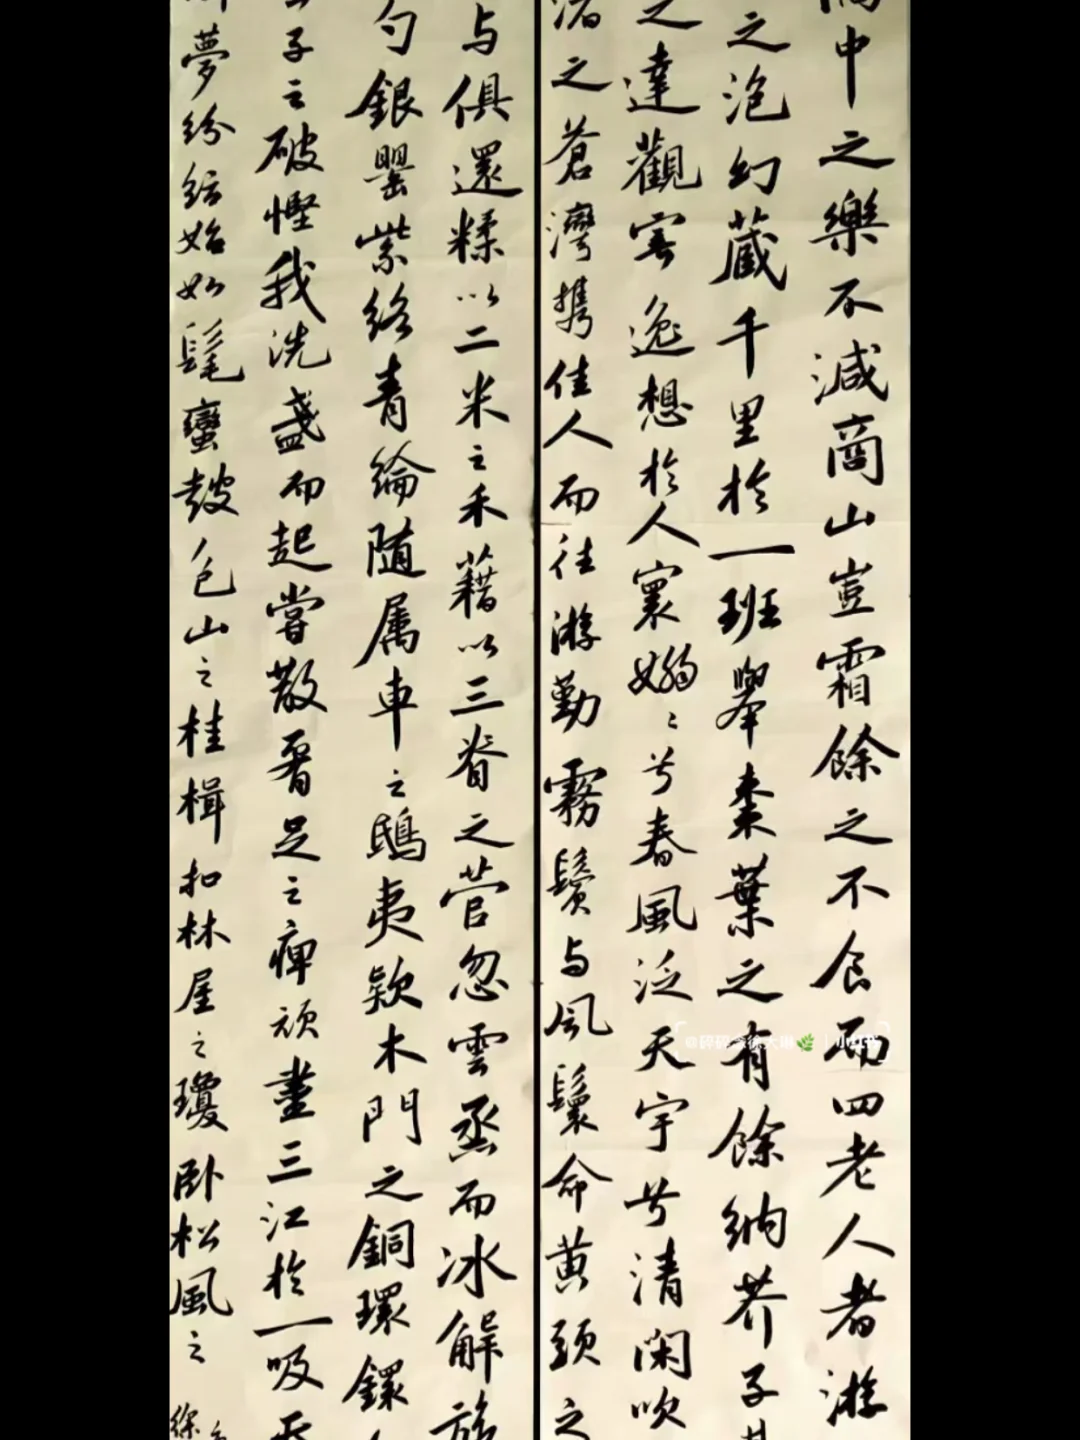 中之樂不減商山豈霜餘之不食而四老人者游
之泡幻藏千里於一班舉棗葉之有餘納芥子其
之達觀寄逸想於人寰嫋〻兮春風泛天宇兮清閑吹
渚之蒼灣携佳人而往游勤霧鬢与風鬟命黄頭之
与俱還糅以二米之禾藉以三脊之菅忽雲烝而冰解旋
勺銀罌紫絡青綸随属車之鴟夷欵木門之銅環鐶
子之破慳我洗盞而起嘗散腰足之痺頑盡三江於一吸吞
夢紛紜始如髦蠻鼓包山之桂楫扣林屋之瓊卧松風之
徐